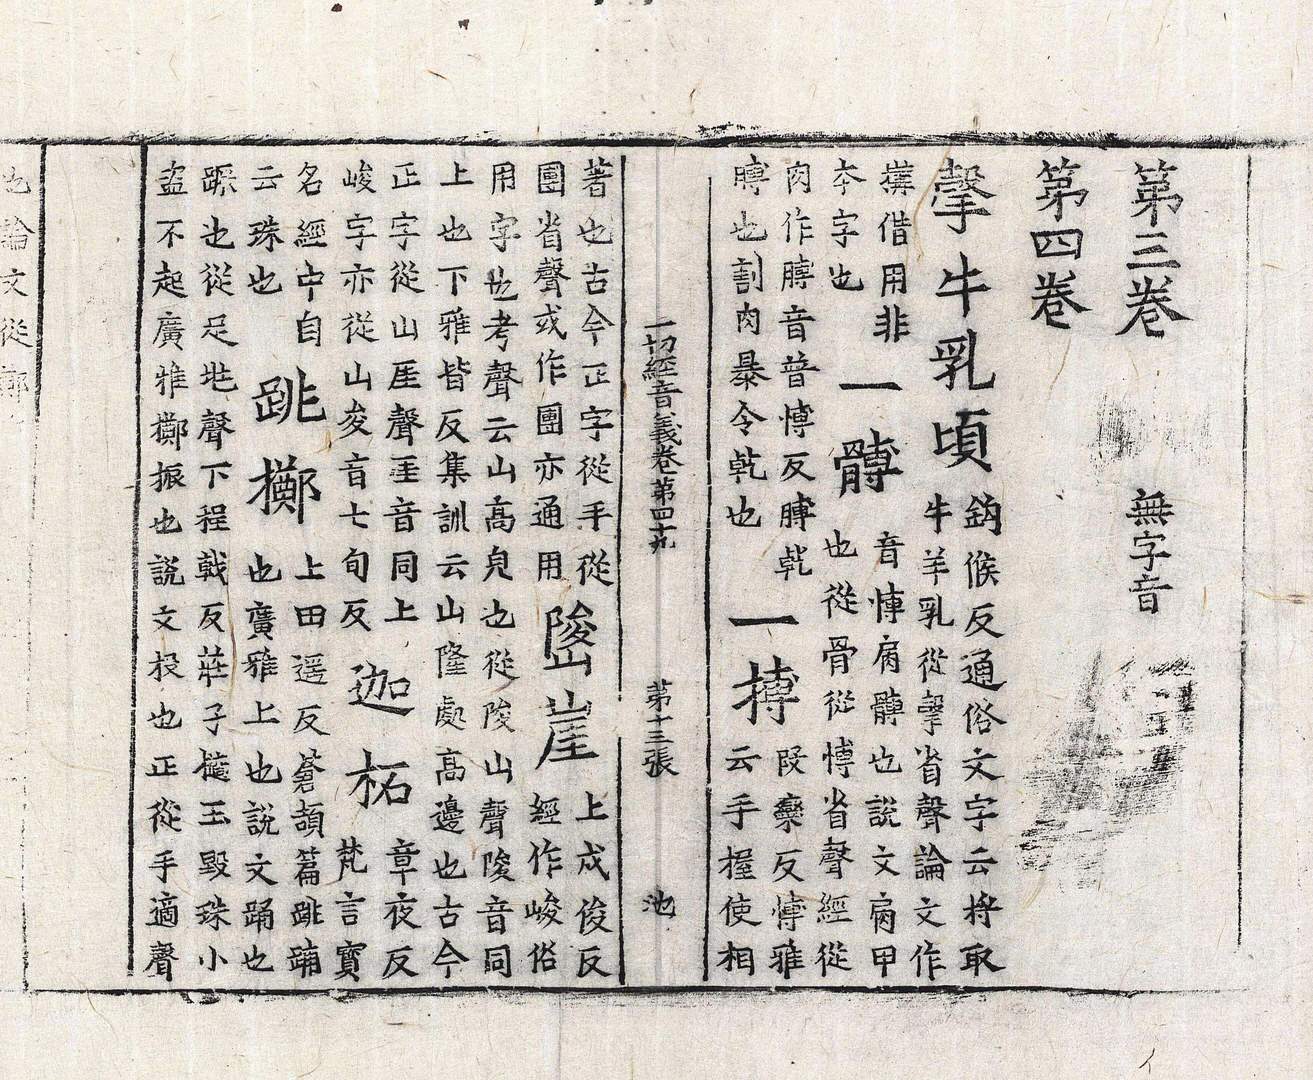 第三卷 無字音
第四卷
㨌牛乳頃 鈎候反通俗文字云捋取
牛羊乳從㨌省聲論文作
搆借用非
本字也
一髆 音博肩髆也說文肩甲
也從骨從博省聲經從
肉作膊音普博反膊乾
膊也割肉暴令乾也
一摶 段欒反博雅
云手握使相
一切經音義卷第四十九 第十三張 池
著也古今正字從手從
團省聲或作團亦通用
陖崖 上戍俊反
經作峻俗
用字也考聲云山高皃也從陖山聲陖音同
上也下雅皆反集訓云山隆處高邊也古今
正字從山厓聲厓音同上
峻字亦從山夋音七旬反
迦柘 章夜反
梵言寶
名經中自
云珠也
跳擲 上田遥反蒼頡篇跳踊
也廣雅上也說文踊也
蹶也從足兆聲下程戟反莊子擿玉毀珠小
盗不起廣雅擲振也說文投也正從手適聲
也論文從鄭